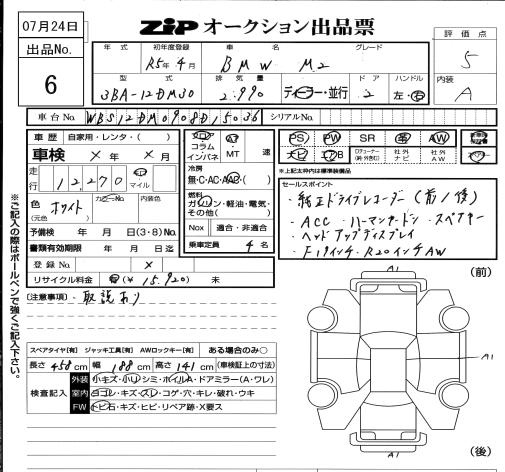 07月24日
ZIP オークション出品票
出品No.
6
評価点
5
内装
A
年式 初年度登録 車名 グレード
R5年4月 BMW M2
型式 排気量 ドア ハンドル
3BA-12DM30 2.990 ディーラー・並行 2 左・右
車台No. WBS12DM0908D15036 シリアルNo.
車歴 自家用・レンタ・( )
車検 × 年 × 月
走行 12,270 km マイル
色 ホワイト
(元色)
カラーNo. 内装色
予備検 年 月 日(3・8)No.
書類有効期限 年 月 日迄
登録No. ×
リサイクル料金 有(¥ 15,920) 未
フロア コラム インパネ
AT MT 速
冷房
無・C・AC・AAC・( )
燃料
ガソリン・軽油・電気・その他( )
Nox 適合・非適合
乗車定員 4 名
PS PW SR 革 AW
ナビ エアB 社外ナビ 社外AW
※上記太枠内は標準装備品
セールスポイント
・純正ドライブレコーダー(前/後)
・ACC ・ハーマンカードン・スペアキー
・ヘッドアップディスプレイ
・F19インチ・R20インチAW
[注意事項]・取説あり
※ご記入の際はボールペンで強くご記入下さい。
スペアタイヤ[有] ジャッキ工具[有] AWロックキー[有] ある場合のみ○
長さ 458 cm 幅 188 cm 高さ 141 cm (車検証上の寸法)
検査記入
外装 小キズ・小U シミ・ホイルA・ドアミラー(A・ワレ)
室内 ヨゴレ・キズ・スレ・コゲ・穴・キレ・破れ・ウキ
FW トビ石・キズ・ヒビ・リペア跡・X要ス
(前)
A1
A1
A1
(後)